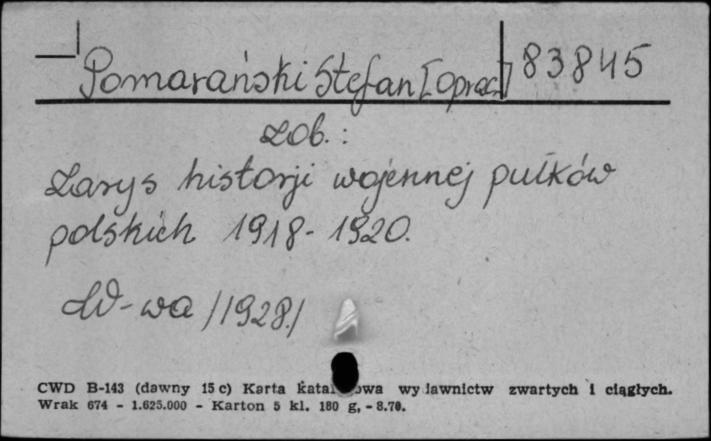 Pomarański Stefan [oprac.] 83845
Zob.:
Zarys historji wojennej pułków
polskich 1918-1920.
W-wa /1928./
CWD B-143 (dawny 15 c) Karta katal owa wydawnictw zwartych i ciągłych.
Wrak 674 - 1.625.000 - Karton 5 kl. 180 g, - 8.70.